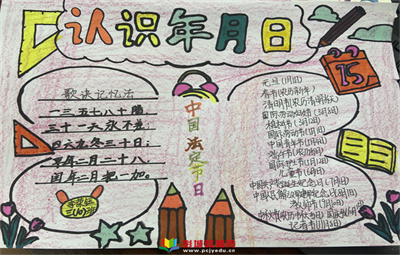 认识年月日
歌诀记忆法
一三五七八十腊
三十一天永不差
四六九冬三十日;
平年二月二十八,
闰年二月把一加。
中国法定节日
15
元旦(1月1日)
春节(农历新年)
清明节(农历清明当天)
国际劳动妇女节(3月8日)
植树节(3月12日)
国际劳动节(5月1日)
中国青年节(5月4日)
端午节(农历五月初五)
国际护士节(5月12日)
儿童节(6月1日)
中国共产党诞生纪念日(7月1日)
教师节(9月10日)
记者节(11月8日)
www.pcjyedu.cn